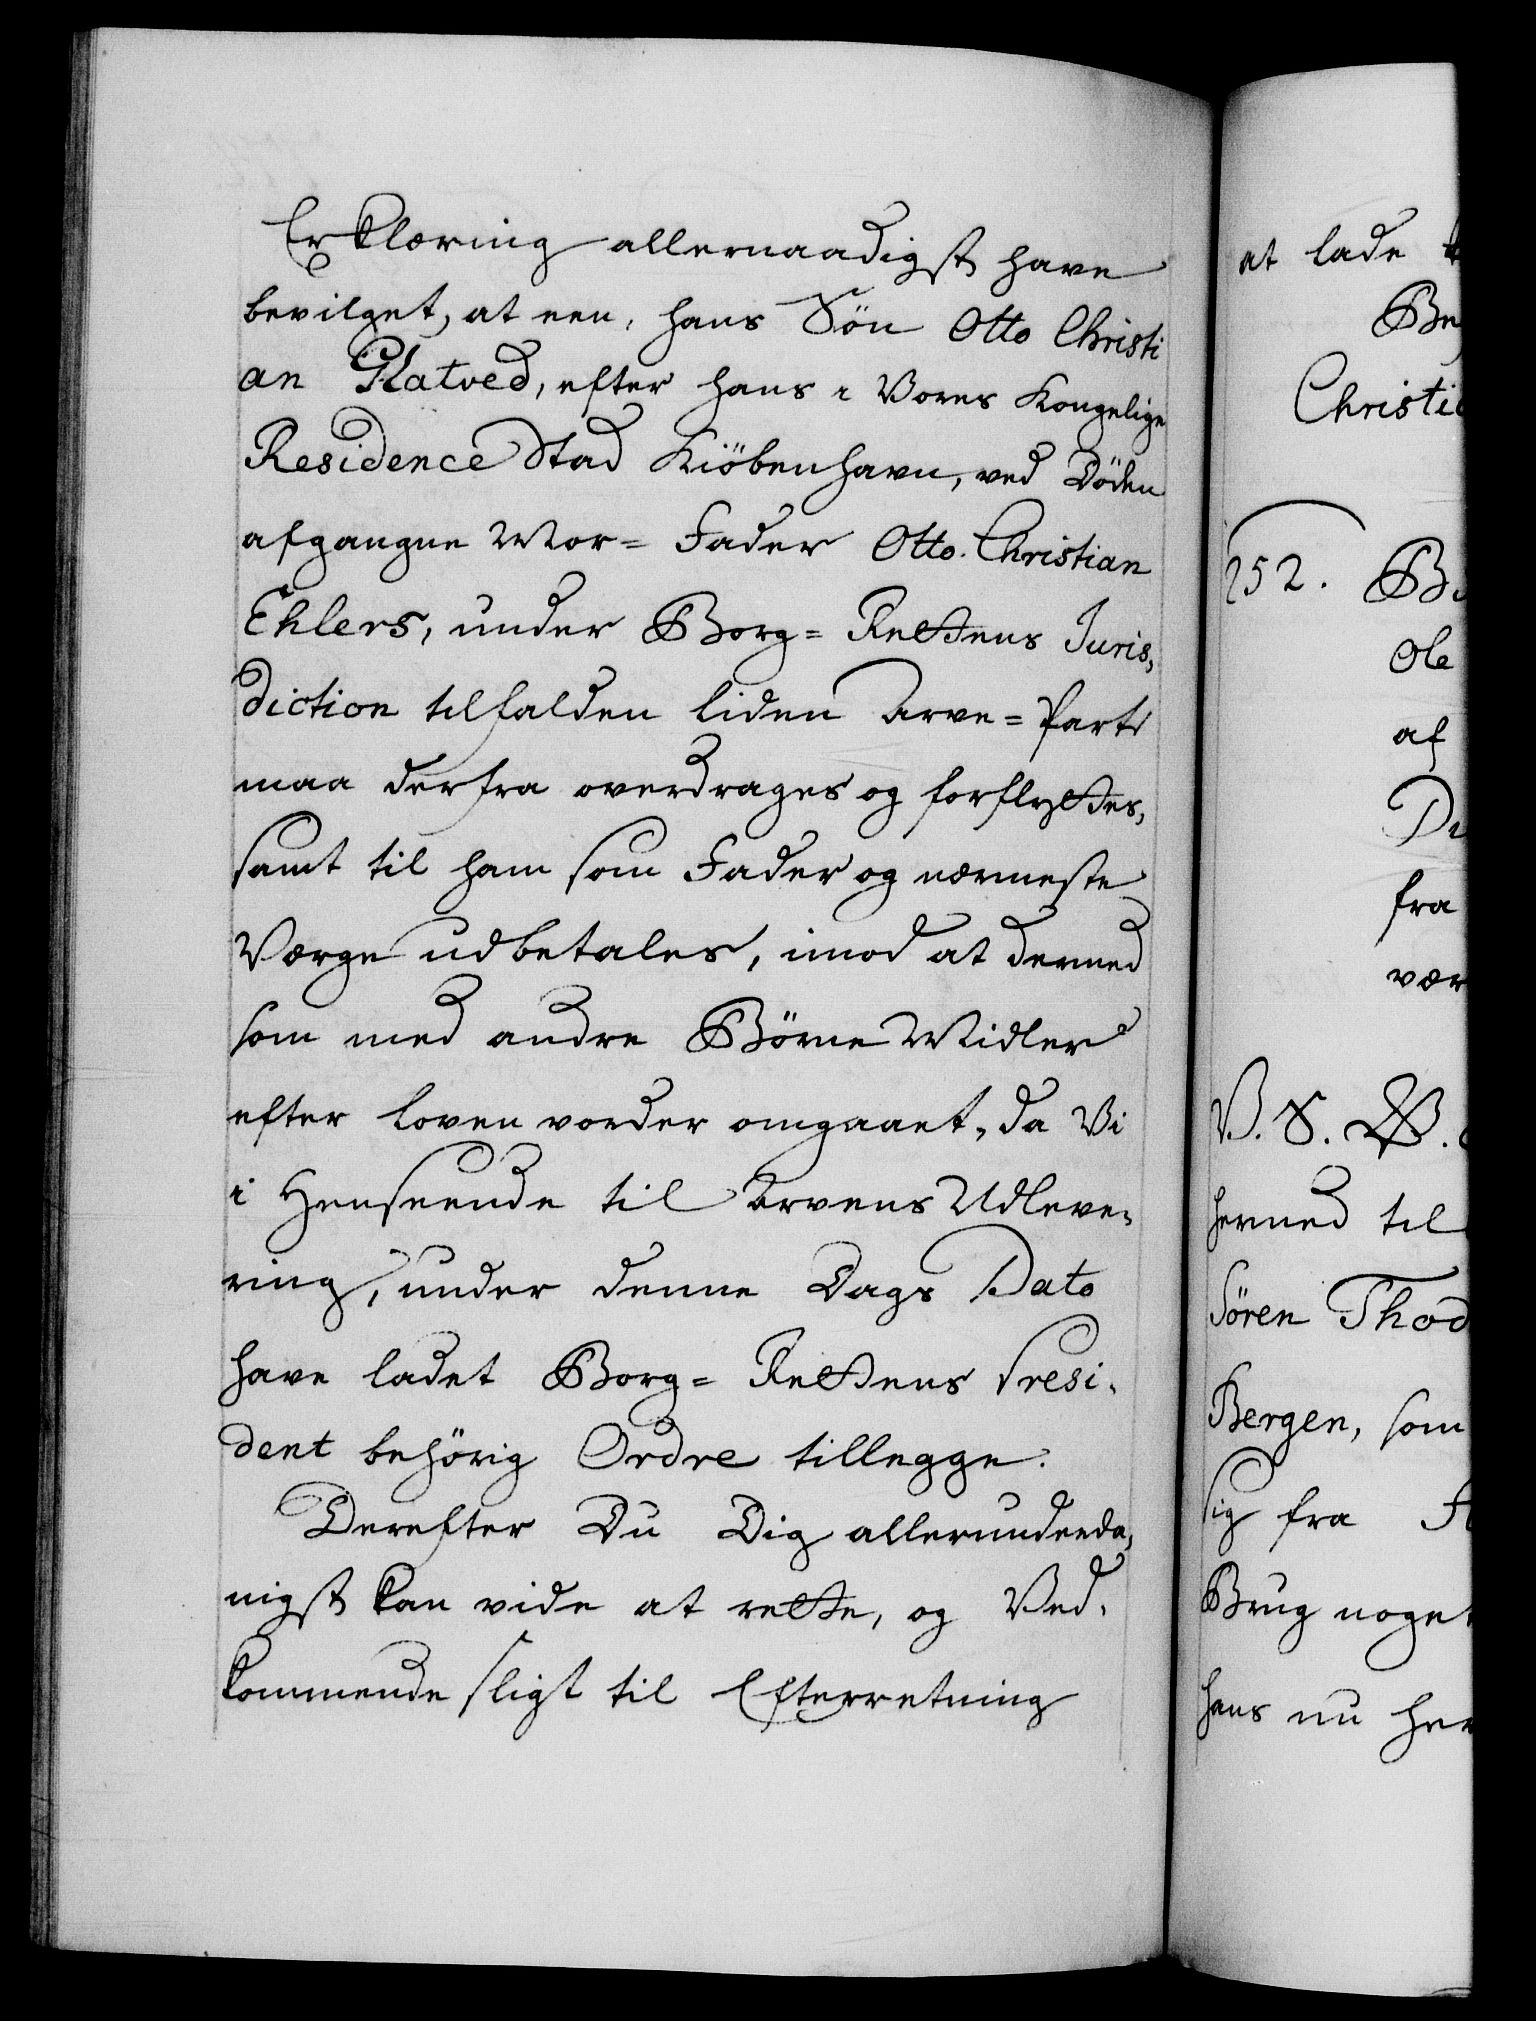 Erklæring allernaadigst have
bevilget, at een, hans Søn Otto Christi
an Platved, efter hans i Vores Kongelige
Residence Stad Kiöbenhavn, ved Döden
afgangne Mor= Fader Otto Christian
Ehlers, under Borg= Rettens Juris,
diction tilfalden liden Arve= Part
maa derfra overdrages og forflyttes,
samt til ham som Fader og nærmeste
Værge udbetales, imod at dermed
som med andre Börne Midler
efter loven vorder omgaaet, da Vi
i Henseende til Arvens Udleve,
ring, under denne Dags Dato
have ladet Borg= Rettens Presi,
dent behörig Ordre tillegge.
Derefter Du Dig allerunderda,
nigst kan vide at rette, og Ved,
kommende sligt til Efterretning
at lade
Be
Christi
252. B
Ole
af
Du
fra
vær
V. S. W.
herned til
Sören Thod
Bergen, som
sig fra
Brug noget
hans nu her